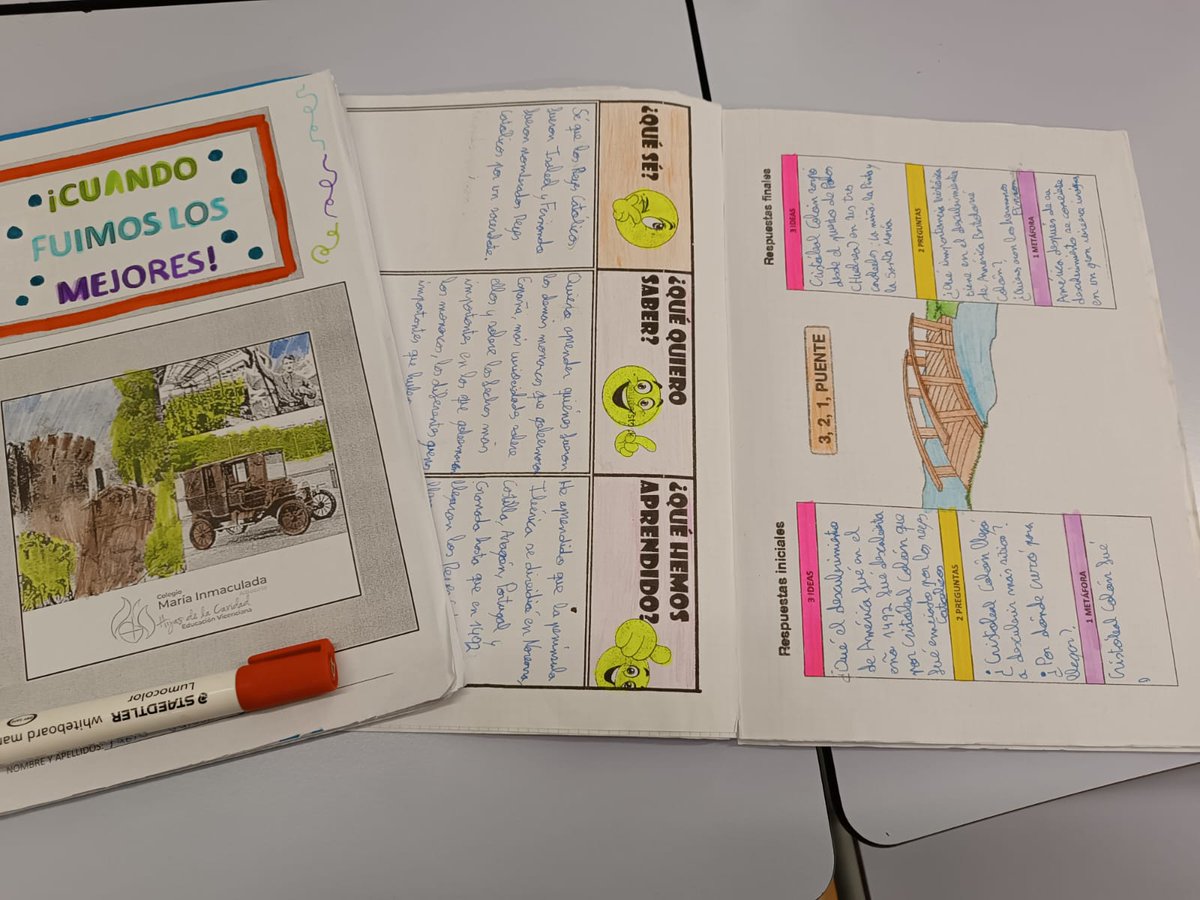 ¡CUANDO
FUIMOS LOS
MEJORES!
Colegio
María Inmaculada
Hijas de la Caridad
Educación Vicenciana
STAEDTLER whiteboard mar
Lumocolor
NOMBRE Y APELLIDOS:
¿QUÉ SÉ?
Sé que los Reyes Católicos
fueron Isabel y Fernando
fueron nombrados Reyes
católicos por un sacerdote.
¿QUÉ QUIERO
SABER?
Quiero aprender quiénes fueron
los demás monarcas que gobernaron
España, más curiosidades sobre
ellos y sobre los hechos más
importantes, en los que gobernaron
los monarcas, los diferentes
importantes que hubo
¿QUÉ HEMOS
APRENDIDO?
He aprendido que la península
Ibérica se dividió en Navarra,
Castilla, Aragón, Portugal y
Granada hasta que en 1492
llegaron los Reyes
3, 2, 1, PUENTE
Respuestas iniciales
3 IDEAS
¿Qué el descubrimiento
de América fué en el
año 1492 fué descubierta
por Cristobal Colón que
fué enviado por los reyes
Católicos
2 PREGUNTAS
¿Cristobal Colón llegó
a descubrir más sitios?
¿Por dónde cruzó para
llegar?
1 METÁFORA
Cristobal Colón fué
Respuestas finales
3 IDEAS
Cristóbal Colón zarpó
desde el puerto de Palos
(Huelva) en las tres
carabelas: la niña, la Pinta y
la Santa María
2 PREGUNTAS
¿Qué importancia histórica
tiene en el descubrimiento
de América
Colón?
¿Quienes eran los hermanos
Pinzón?
1 METÁFORA
América después de su
descubrimiento se convierte
en un gran